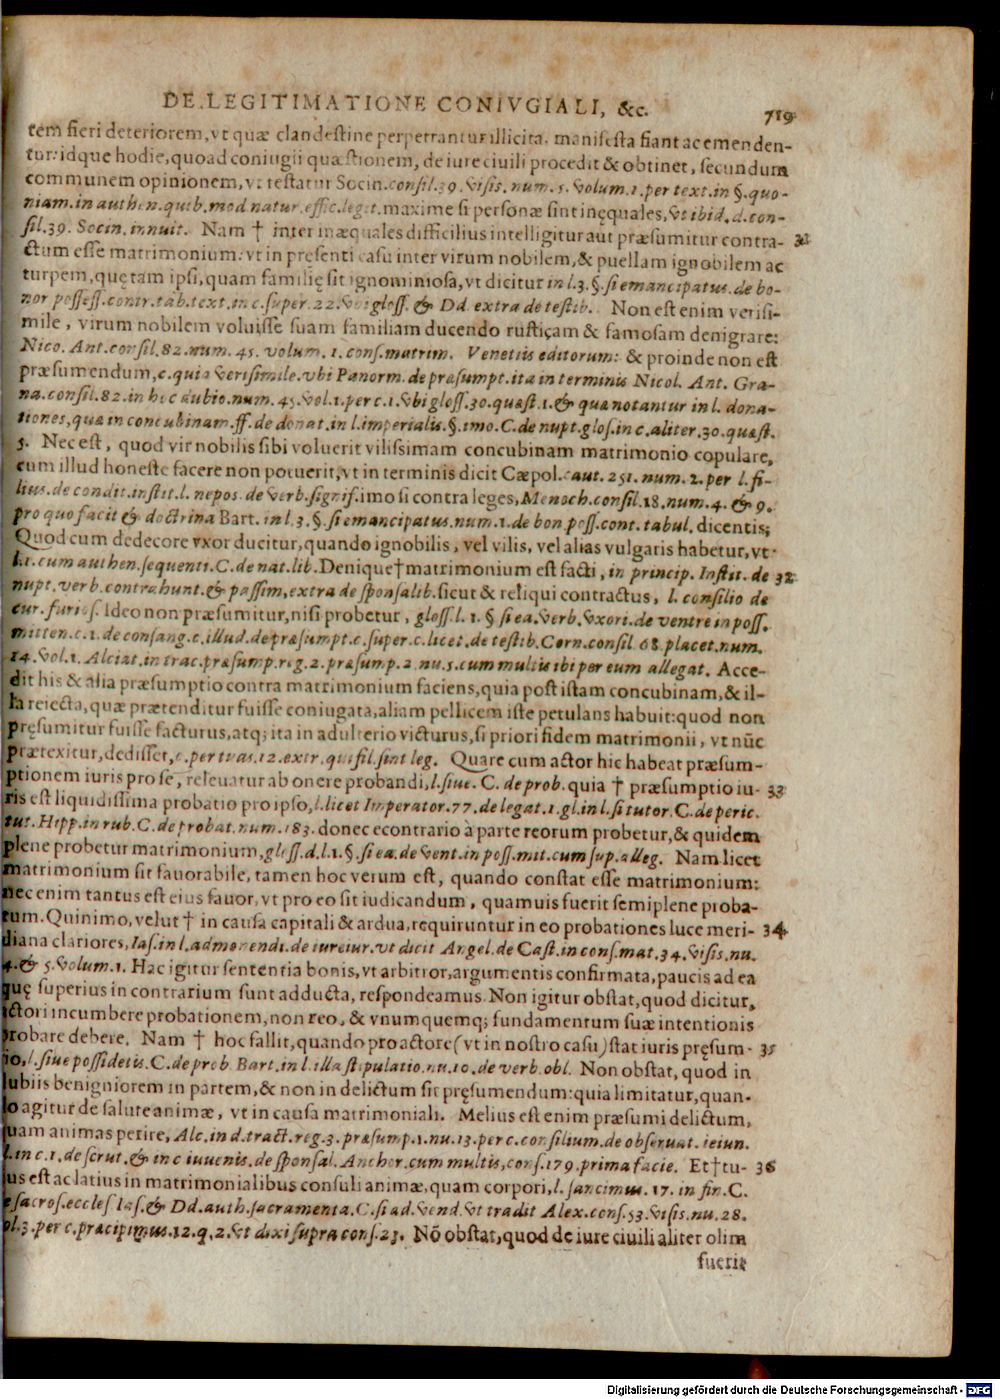 DE LEGITIMATIONE CONIVGIALI, &c. 719
tem fieri deteriorem, vt quæ clandestine perpetrantur illicita, manifesta fiant ac emenden-
tur: idque hodie, quoad coniugii quæstionem, de iure ciuili procedit & obtinet, secundum
communem opinionem, vt testatur Socin. consil. 39. Visis. num. 5. Volum. 1. per text. in §. quo-
niam. in authen. quib. mod natur. effic. legit. maxime si personæ sint inęquales, vt ibid. d. con-
sil. 39. Socin. innuit. Nam † inter inæquales difficilius intelligitur aut præsumitur contra- 31
ctum esse matrimonium: vt in presenti casu inter virum nobilem, & puellam ignobilem ac
turpem, quę tam ipsi, quam familię sit ignominiosa, vt dicitur in l. 3. §. si emancipatus. de bo-
nor possess. contr. tab. text. in c. super. 22. & ibi gloss. & Dd. extra de testib. Non est enim verisi-
mile, virum nobilem voluisse suam familiam ducendo rusticam & famosam denigrare:
Nico. Ant. consil. 82. num. 45. volum. 1. cons. matrim. Venetiis editorum: & proinde non est
præsumendum, c. quia verisimile. vbi Panorm. de præsumpt. ita in terminis Nicol. Ant. Gra-
na. consil. 82. in hoc dubio. num. 45. Vol. 1. per c. 1. & ibi gloss. 30. quæst. 1. & quæ notantur in l. dona-
tiones, quæ in concubinam. ff. de donat. in l. imperialis. §. imo. C. de nupt. glos. in c. aliter. 30. quæst.
5. Nec est, quod vir nobilis sibi voluerit vilissimam concubinam matrimonio copulare,
cum illud honeste facere non potuerit, vt in terminis dicit Cæpol. caut. 251. num. 2. per l. fi-
lius. de condit. instit. l. nepos. de verb. signif. imo si contra leges, Menoch. consil. 18. num. 4. & 9.
pro quo facit & doctrina Bart. in l. 3. §. si emancipatus. num. 1. de bon. poss. cont. tabul. dicentis;
Quod cum dedecore vxor ducitur, quando ignobilis, vel vilis, vel alias vulgaris habetur, vt
l. 1. cum authen. sequenti. C. de nat. lib. Denique † matrimonium est facti, in princip. Instit. de 32
nupt. verb. contrahunt. & passim, extra de sponsalib. sicut & reliqui contractus, l. consilio de
cur. furios. Ideo non præsumitur, nisi probetur, gloss. l. 1. § si ea. verb. vxori. de ventre in poss.
mitten. c. 1. de consang. c. illud. de præsumpt. c. super. c. licet. de testib. Corn. consil 68. placet. num.
14. Vol. 1. Alciat. in trac. præsump. reg. 2. præsump. 2 nu. 5. cum multis ibi per eum allegat. Acce-
dit his & alia præsumptio contra matrimonium faciens, quia post istam concubinam, & il-
la reiecta, quæ prætenditur fuisse coniugata, aliam pellicem iste petulans habuit: quod non
pręsumitur fuisse facturus, atq; ita in adulterio victurus, si priori fidem matrimonii, vt nūc
prætexitur, dedisset, c. per tuas. 12. extr. qui fil. sint leg. Quare cum actor hic habeat præsum-
ptionem iuris pro se, releuatur ab onere probandi, l. siue. C. de prob. quia † præsumptio iu- 33
ris est liquidissima probatio pro ipso, l. licet Imperator. 77. de legat. 1. gl. in l. si tutor. C. de peric.
tut. Hipp. in rub. C. de probat. num. 183. donec econtrario à parte reorum probetur, & quidem
plene probetur matrimonium, gloss. d. l. 1. §. si ea. de vent. in poss. mit. cum sup. alleg. Nam licet
matrimonium sit fauorabile, tamen hoc verum est, quando constat esse matrimonium:
nec enim tantus est eius fauor, vt pro eo sit iudicandum, quamuis fuerit semiplene proba-
tum. Quinimo, velut † in causa capitali & ardua, requiruntur in eo probationes luce meri- 34
diana clariores, Ias. in l. admonendi. de iureiur. vt dicit Angel. de Cast. in cons. mat. 34. Visis. nu.
4. & 5. Volum. 1. Hac igitur sententia bonis, vt arbitror, argumentis confirmata, paucis ad ea
quę superius in contrarium sunt adducta, respondeamus. Non igitur obstat, quod dicitur,
actori incumbere probationem, non reo, & vnumquemq; fundamentum suæ intentionis
probare debere. Nam † hoc fallit, quando pro actore (vt in nostro casu) stat iuris pręsum- 35
io, l. siue possidetis. C. de prob Bart. in l. illa stipulatio. nu. 10. de verb. obl. Non obstat, quod in
lubiis benigniorem in partem, & non in delictum sit pręsumendum: quia limitatur, quan-
lo agitur de salute animæ, vt in causa matrimoniali. Melius est enim præsumi delictum,
quam animas perire, Alc. in d. tract. reg. 3. præsump. 1. nu. 13. per c. consilium. de obseruat. ieiun.
l. in c. 1. de scrut. & in c iuuenis. de sponsal. Anchor. cum multis, cons. 179. prima facie. Et † tu- 36
ius est ac latius in matrimonialibus consuli animæ, quam corpori, l. sancimus. 17. in fin. C.
e sacros. eccles Ias. & Dd. auth. sacramenta. C. si ad. vend. vt tradit Alex. cons. 53. visis. nu. 28.
ol. 3. per c. præcipimus. 12. q. 2. vt dixi supra cons. 23. Nō obstat, quod de iure ciuili aliter olim
fuerit
Digitalisierung gefördert durch die Deutsche Forschungsgemeinschaft - DFG